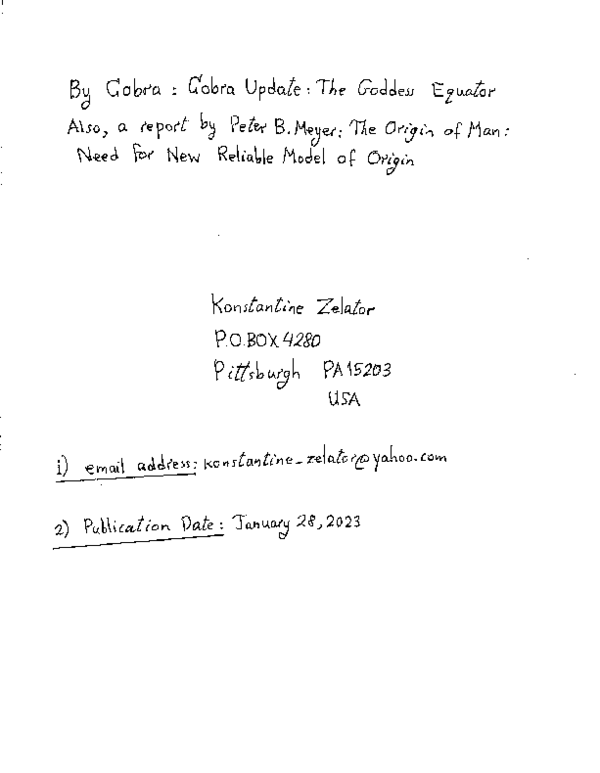 By Cobra : Cobra Update : The Goddess Equator
Also, a report by Peter B. Meyer: The Origin of Man:
Need for New Reliable Model of Origin
Konstantine Zelator
P.O.BOX 4280
Pittsburgh PA 15203
USA
1) email address: konstantine_zelator@yahoo.com
2) Publication Date: January 28, 2023